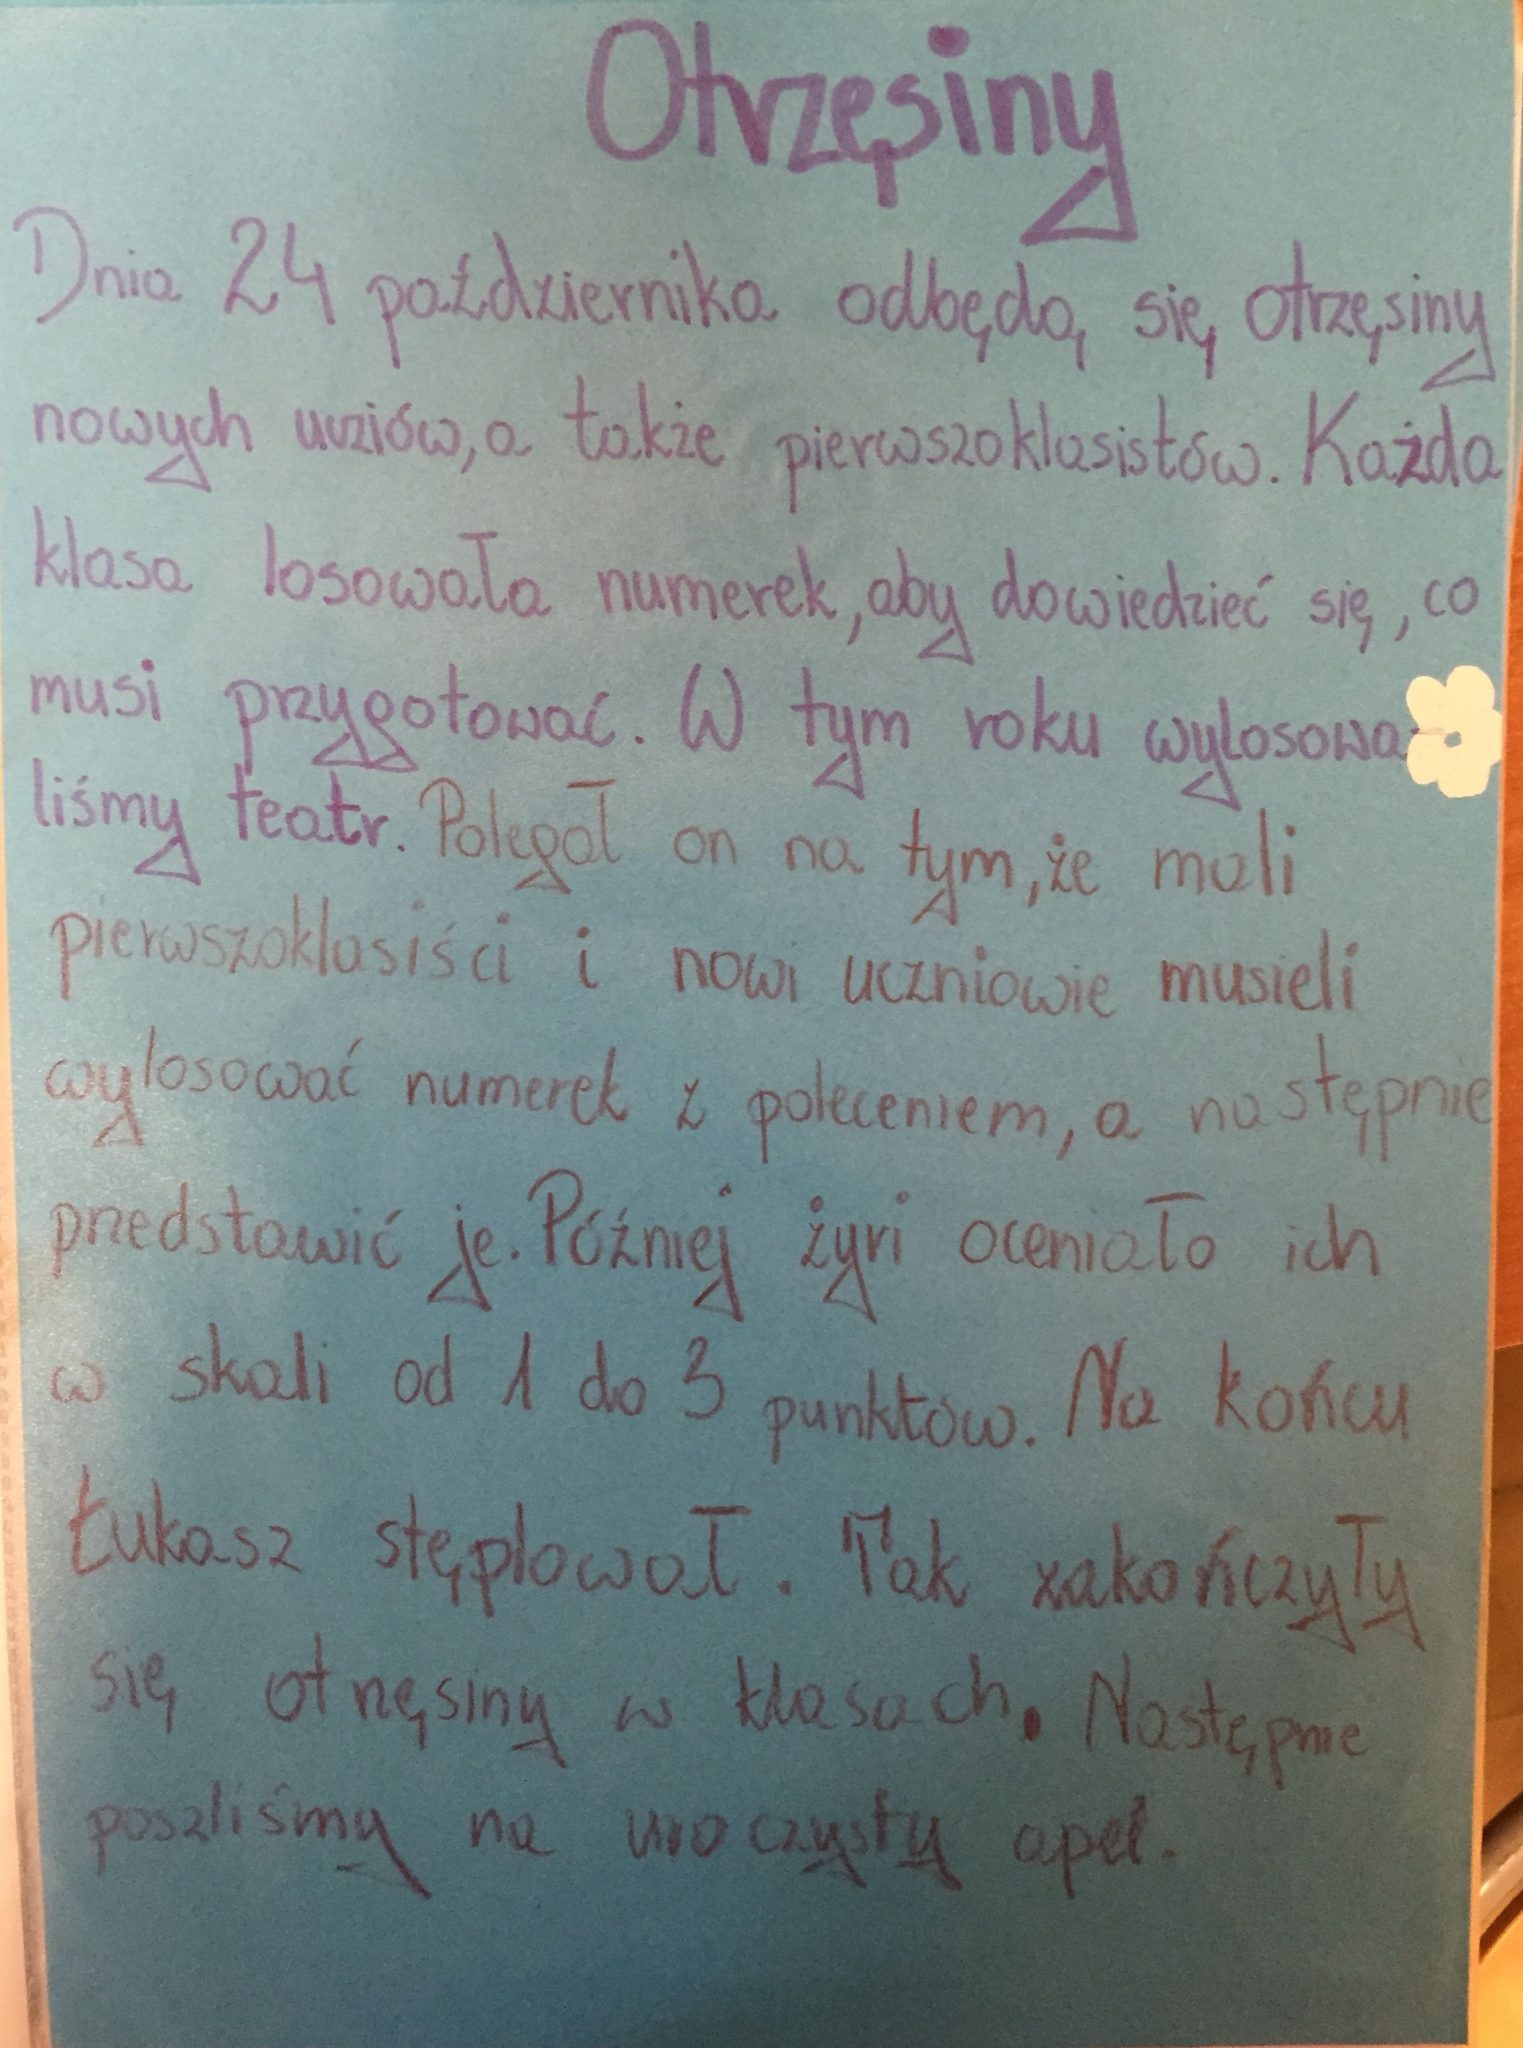 Otrzęsiny
Dnia 24 października odbędą się otrzęsiny
nowych ucziów, a także pierwszoklasistów. Każda
klasa losowała numerek, aby dowiedzieć się, co
musi przygotować. W tym roku wylosowa-
liśmy teatr. Polegał on na tym, że mali
pierwszoklasiści i nowi uczniowie musieli
wylosować numerek z poleceniem, a następnie
przedstawić je. Później żyri oceniało ich
w skali od 1 do 3 punktów. Na końcu
Łukasz stęplował. Tak zakończyły
się otrzęsiny w klasach. Następnie
poszliśmy na uroczysty apel.